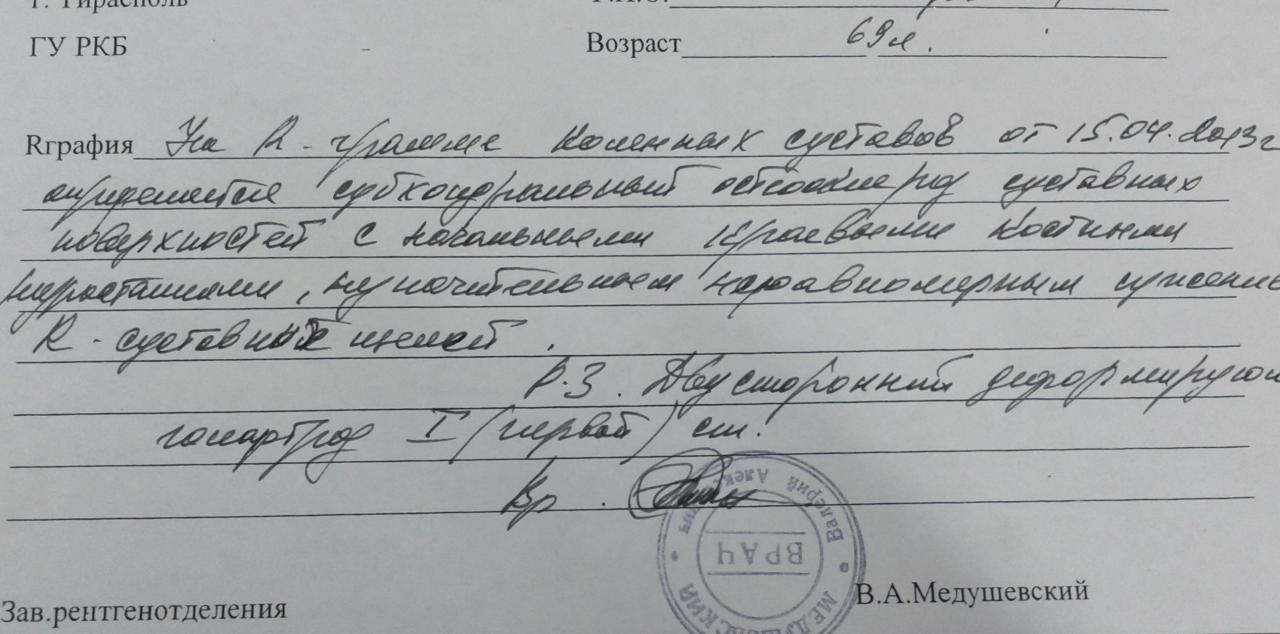 г. Тирасполь
ГУ РКБ
Возраст 69 л.
Rграфия На R-грамме коленных суставов от 15.04.2013г
определяется субхондральный остеосклероз суставных
поверхностей с начальными краевыми костными
разрастаниями, незначительным неравномерным сужением
R-суставных щелей.
Р.З. Двусторонний деформирующ
гонартроз I (первой) ст.
Вр.
Валерий Алекс
ВРАЧ
МЕДУШЕВСКИЙ
Зав.рентгенотделения
В.А.Медушевский